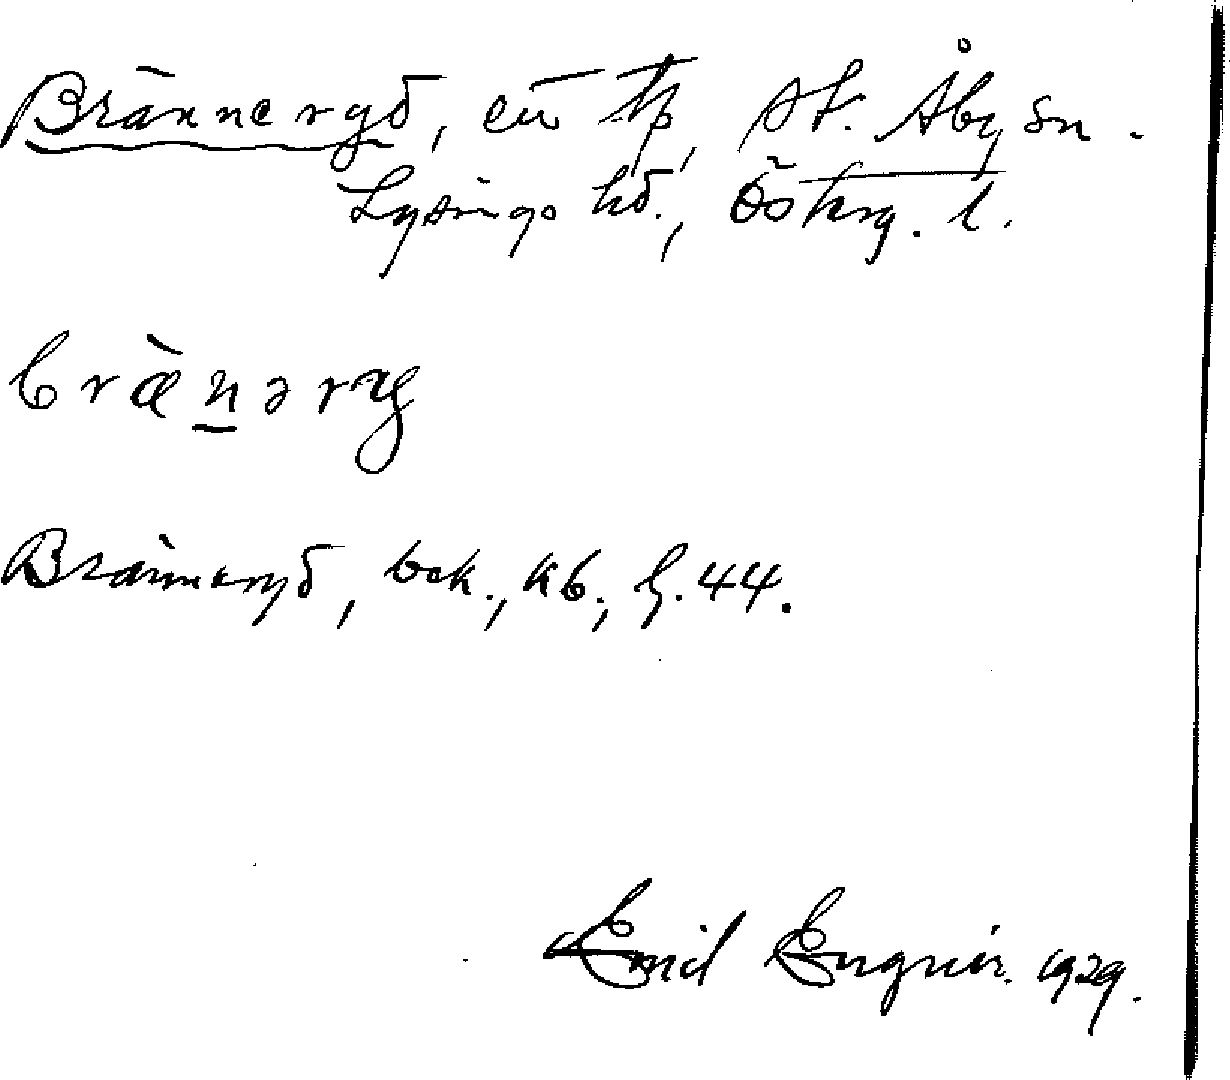 Bränneryd, en tp, St. Åby sn.
Lysings hd., Österg. l.
bræ̀nəry
Bränneryd, bek., kb., h. 44.
Emil Engnér. 1929.